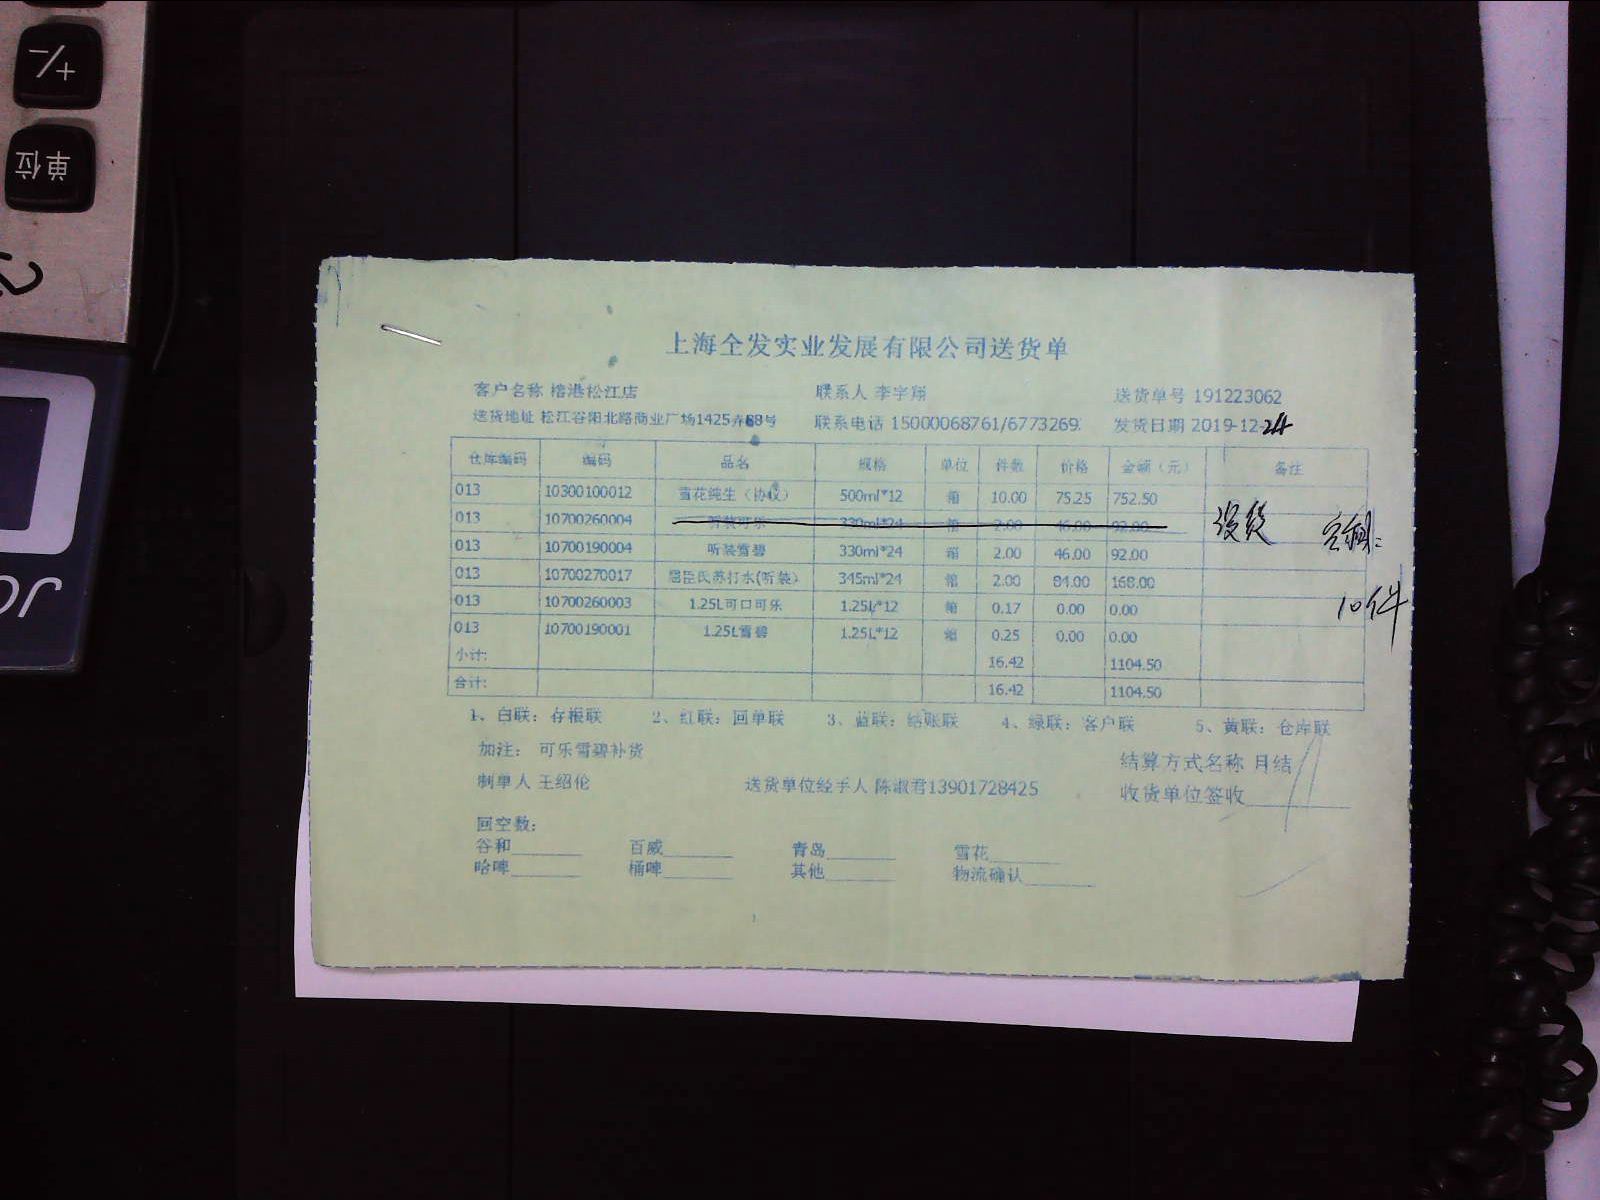 +/-
单位
上海全发实业发展有限公司送货单
客户名称 榰港松江店 联系人 李宇翔 送货单号 191223062
送货地址 松江谷阳北路商业广场1425弄68号 联系电话 15000068761/6773269 发货日期 2019-12-24
仓库编码 编码 品名 规格 单位 件数 价格 金额（元） 备注
013 10300100012 雪花纯生（协议） 500ml*12 箱 10.00 75.25 752.50
013 10700260004 听装可乐 330ml*24 箱 2.00 46.00 92.00 没货 空箱:
013 10700190004 听装雪碧 330ml*24 箱 2.00 46.00 92.00
013 10700270017 屈臣氏苏打水(听装) 345ml*24 箱 2.00 84.00 168.00
013 10700260003 1.25L可口可乐 1.25L*12 箱 0.17 0.00 0.00 10件
013 10700190001 1.25L雪碧 1.25L*12 箱 0.25 0.00 0.00
小计: 16.42 1104.50
合计: 16.42 1104.50
1、白联：存根联 2、红联：回单联 3、蓝联：结账联 4、绿联：客户联 5、黄联：仓库联
加注： 可乐雪碧补货 结算方式名称 月结
制单人 王绍伦 送货单位经手人 陈淑君13901728425 收货单位签收
回空数：
谷和 百威 青岛 雪花
哈啤 桶啤 其他 物流确认